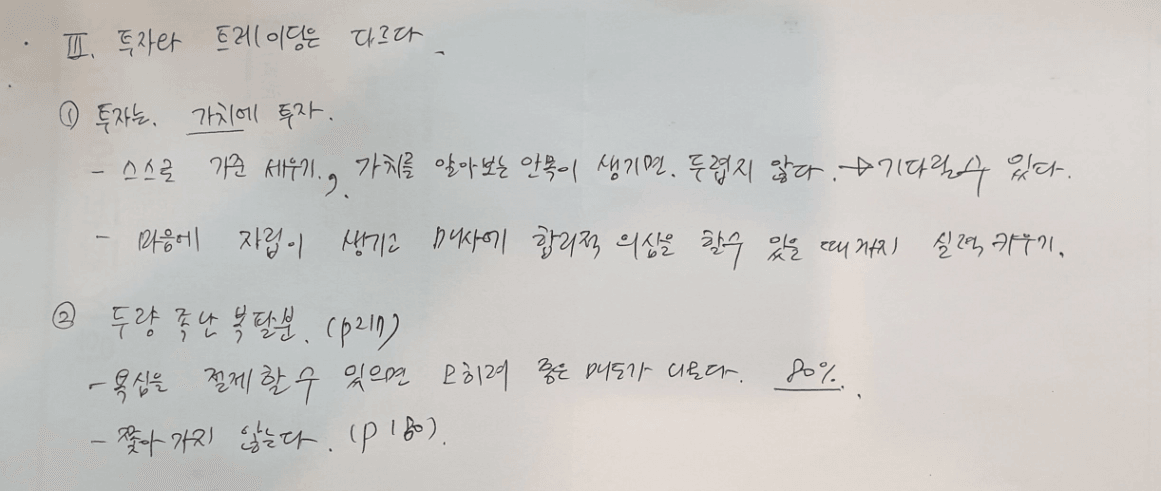 Ⅲ. 투자와 트레이딩은 다르다.
① 투자는. 가치에 투자.
- 스스로 기준 세우기., 가치를 알아보는 안목이 생기면. 두렵지 않다. → 기다릴 수 있다.
- 마음에 자립이 생기고 매사에 합리적 의심을 할수 있을 때까지 실력 키우기.
② 두량 족난 복팔분. (p217)
- 욕심을 절제할 수 있으면 오히려 좋은 매도가 나온다. 80%.
- 쫓아가지 않는다. (p180).